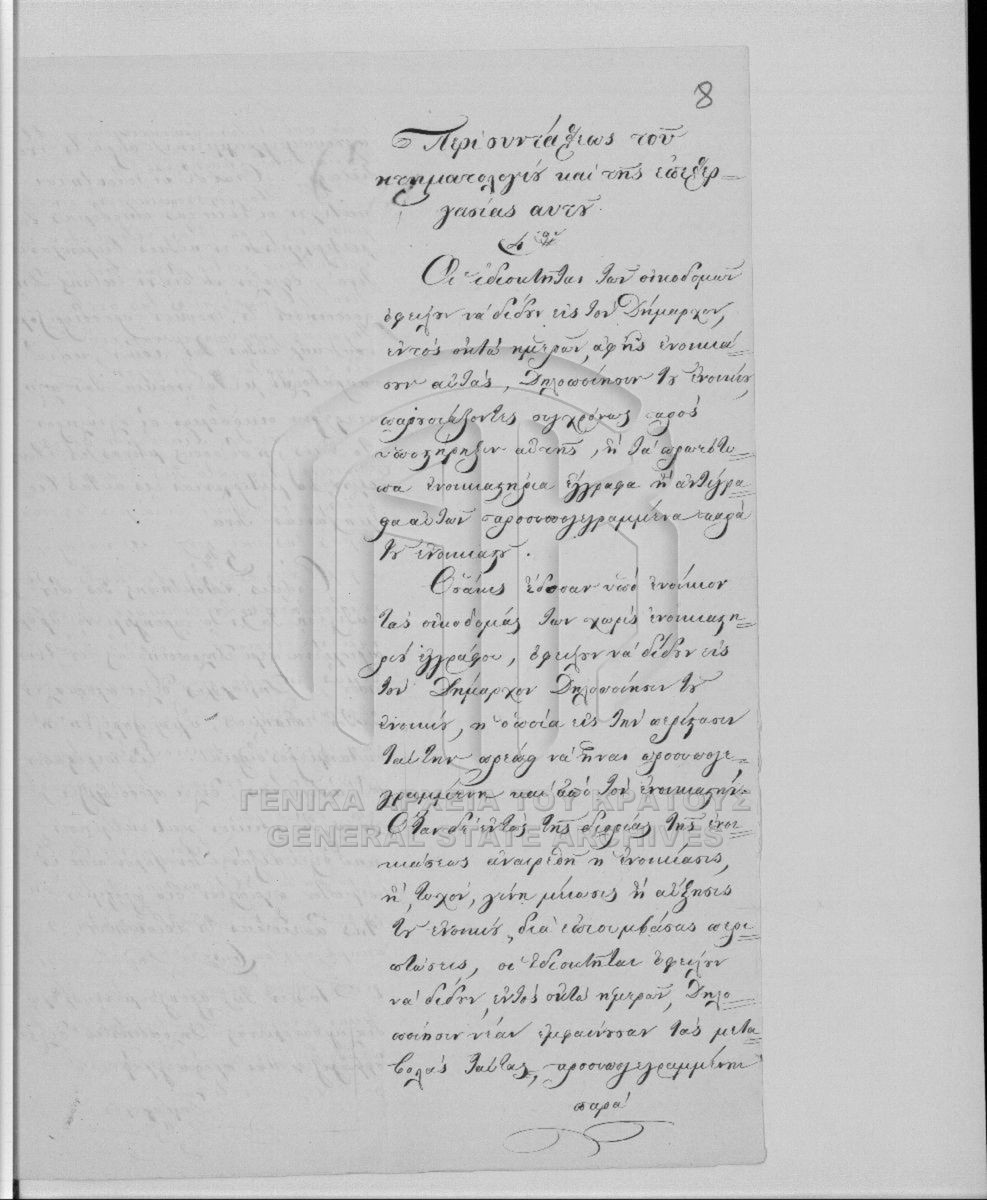 8
Περὶ συντάξεως τοῦ
κτηματολογίου καὶ τῆς ἐπεξερ-
γασίας αυτού.
Οἱ ἰδιοκτῆται τῶν οἰκοδομῶν
ὀφείλουν νὰ δίδουν εἰς τὸν Δήμαρχον,
ἐντὸς ὀκτὼ ἡμερῶν, ἀφ' ἧς ἐνοικιά=
σουν αὐτὰς, δηλοποίησιν τοῦ ἐνοικίου,
παρουσιάζοντες συγχρόνως πρὸς
ὑποστήριξιν αὐτῆς, ἢ τὰ πρωτότυ=
πα ἐνοικιαστήρια ἔγγραφα ἢ ἀντίγρα=
φα αὐτῶν προσυπογεγραμμένα παρὰ
τοῦ ἐνοικιαστοῦ.
Ὁσάκις ἔδοσαν ὑπὸ ἐνοίκιον
τὰς οἰκοδομάς των χωρὶς ἐνοικιαστη=
ρίου ἐγγράφου, ὀφείλουν νὰ δίδουν εἰς
τὸν Δήμαρχον δηλοποίησιν τοῦ
ἐνοικίου, ἡ ὁποία εἰς τὴν περίστασιν
ταύτην πρέπει νὰ ἦναι προσυπογε=
γραμμένη καὶ ἀπὸ τὸν ἐνοικιαστήν.
Ὅταν δὲ ἐντὸς τῆς διορίας τῆς ἐνοι
κιάσεως ἀναιρεθῇ ἡ ἐνοικίασις,
ἢ, τυχὸν, γίνῃ μείωσις ἢ αὔξησις
τοῦ ἐνοικίου, διὰ ἐπισυμβάσας περι=
στάσεις, οἱ ἰδιοκτῆται ὀφείλουν
νὰ δίδουν, ἐντὸς ὀκτὼ ἡμερῶν, δηλο=
ποίησιν νέαν ἐμφαίνουσαν τὰς μετα
βολὰς ταύτας, προσυπογεγραμμένην
παρὰ
ΓΕΝΙΚΑ ΑΡΧΕΙΑ ΤΟΥ ΚΡΑΤΟΥΣ
GENERAL STATE ARCHIVES